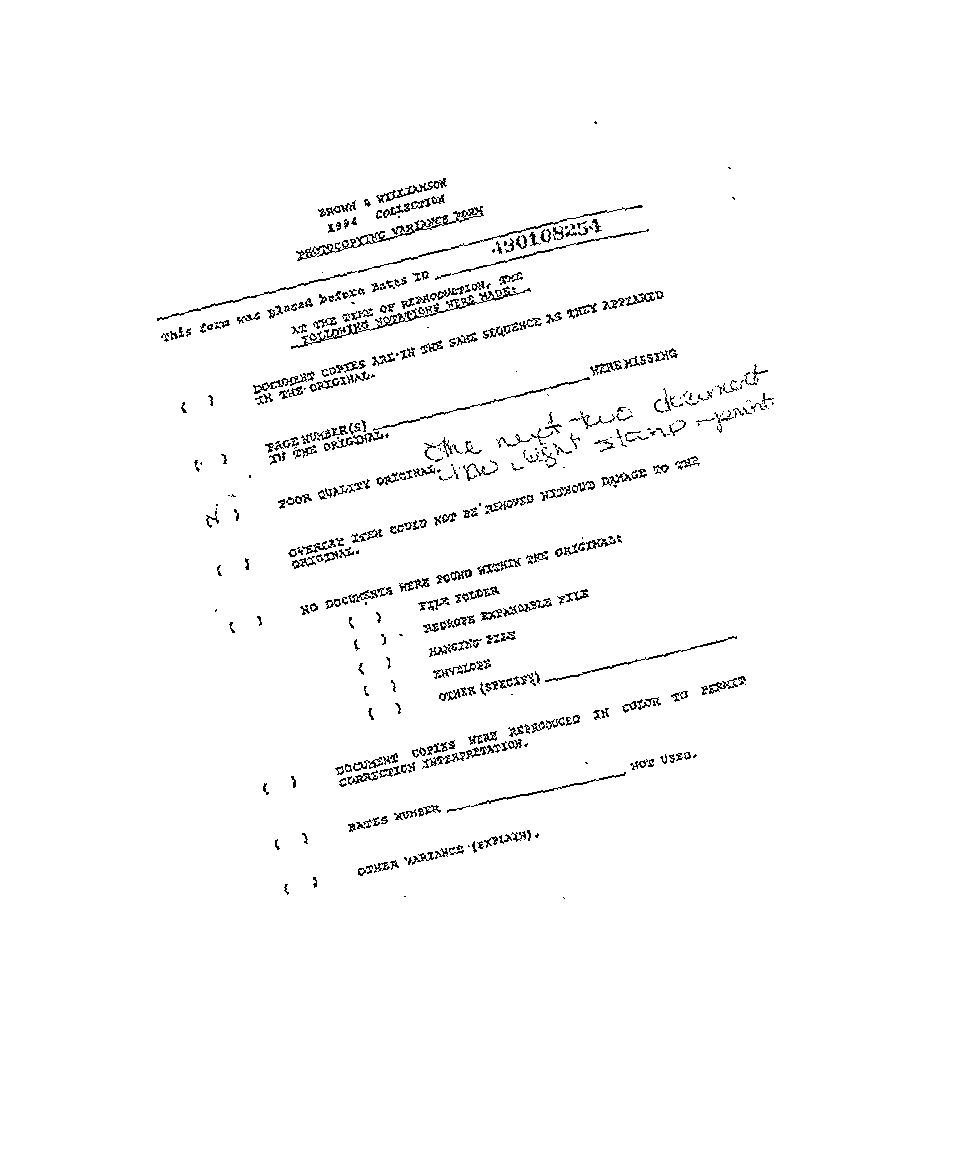 BROWN & WILLIAMSON
1994 COLLECTION
PHOTOCOPYING VARIANCE FORM
This form was placed before Bates ID 490108254
AT THE TIME OF REPRODUCTION, THE
FOLLOWING NOTATIONS WERE MADE:
( ) DOCUMENT COPIES ARE IN THE SAME SEQUENCE AS THEY APPEARED
IN THE ORIGINAL.
( ) PAGE NUMBER(S) ____ WERE MISSING
IN THE ORIGINAL.
The next two document
light stamp print
(X) POOR QUALITY ORIGINAL.
( ) OVERLAY ITEM COULD NOT BE REMOVED WITHOUT DAMAGE TO THE
ORIGINAL.
( ) NO DOCUMENTS WERE FOUND WITHIN THE ORIGINAL:
( ) FILE FOLDER
( ) REDROPE EXPANDABLE FILE
( ) HANGING FILE
( ) ENVELOPE
( ) OTHER (SPECIFY) ____
( ) DOCUMENT COPIES WERE REPRODUCED IN COLOR TO PERMIT
CORRECTION INTERPRETATION.
( ) BATES NUMBER ____ NOT USED.
( ) OTHER VARIANCE (EXPLAIN).